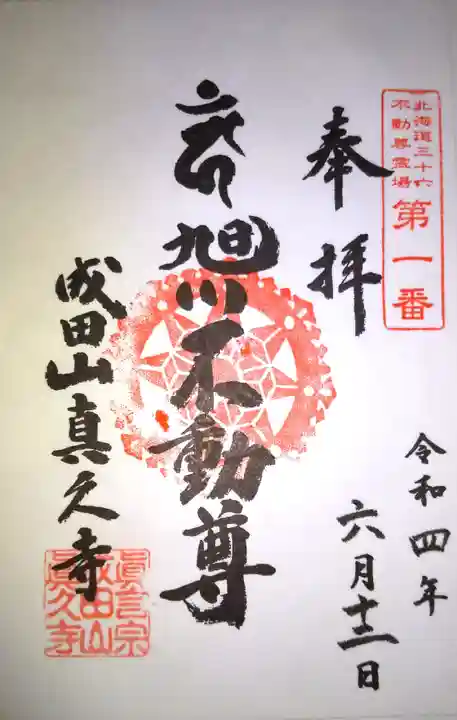 北海道三十六
不動尊霊場
第一番
奉拝
令和四年
六月十二日
旭川不動尊
成田山真久寺
眞言宗
成田山
眞久寺